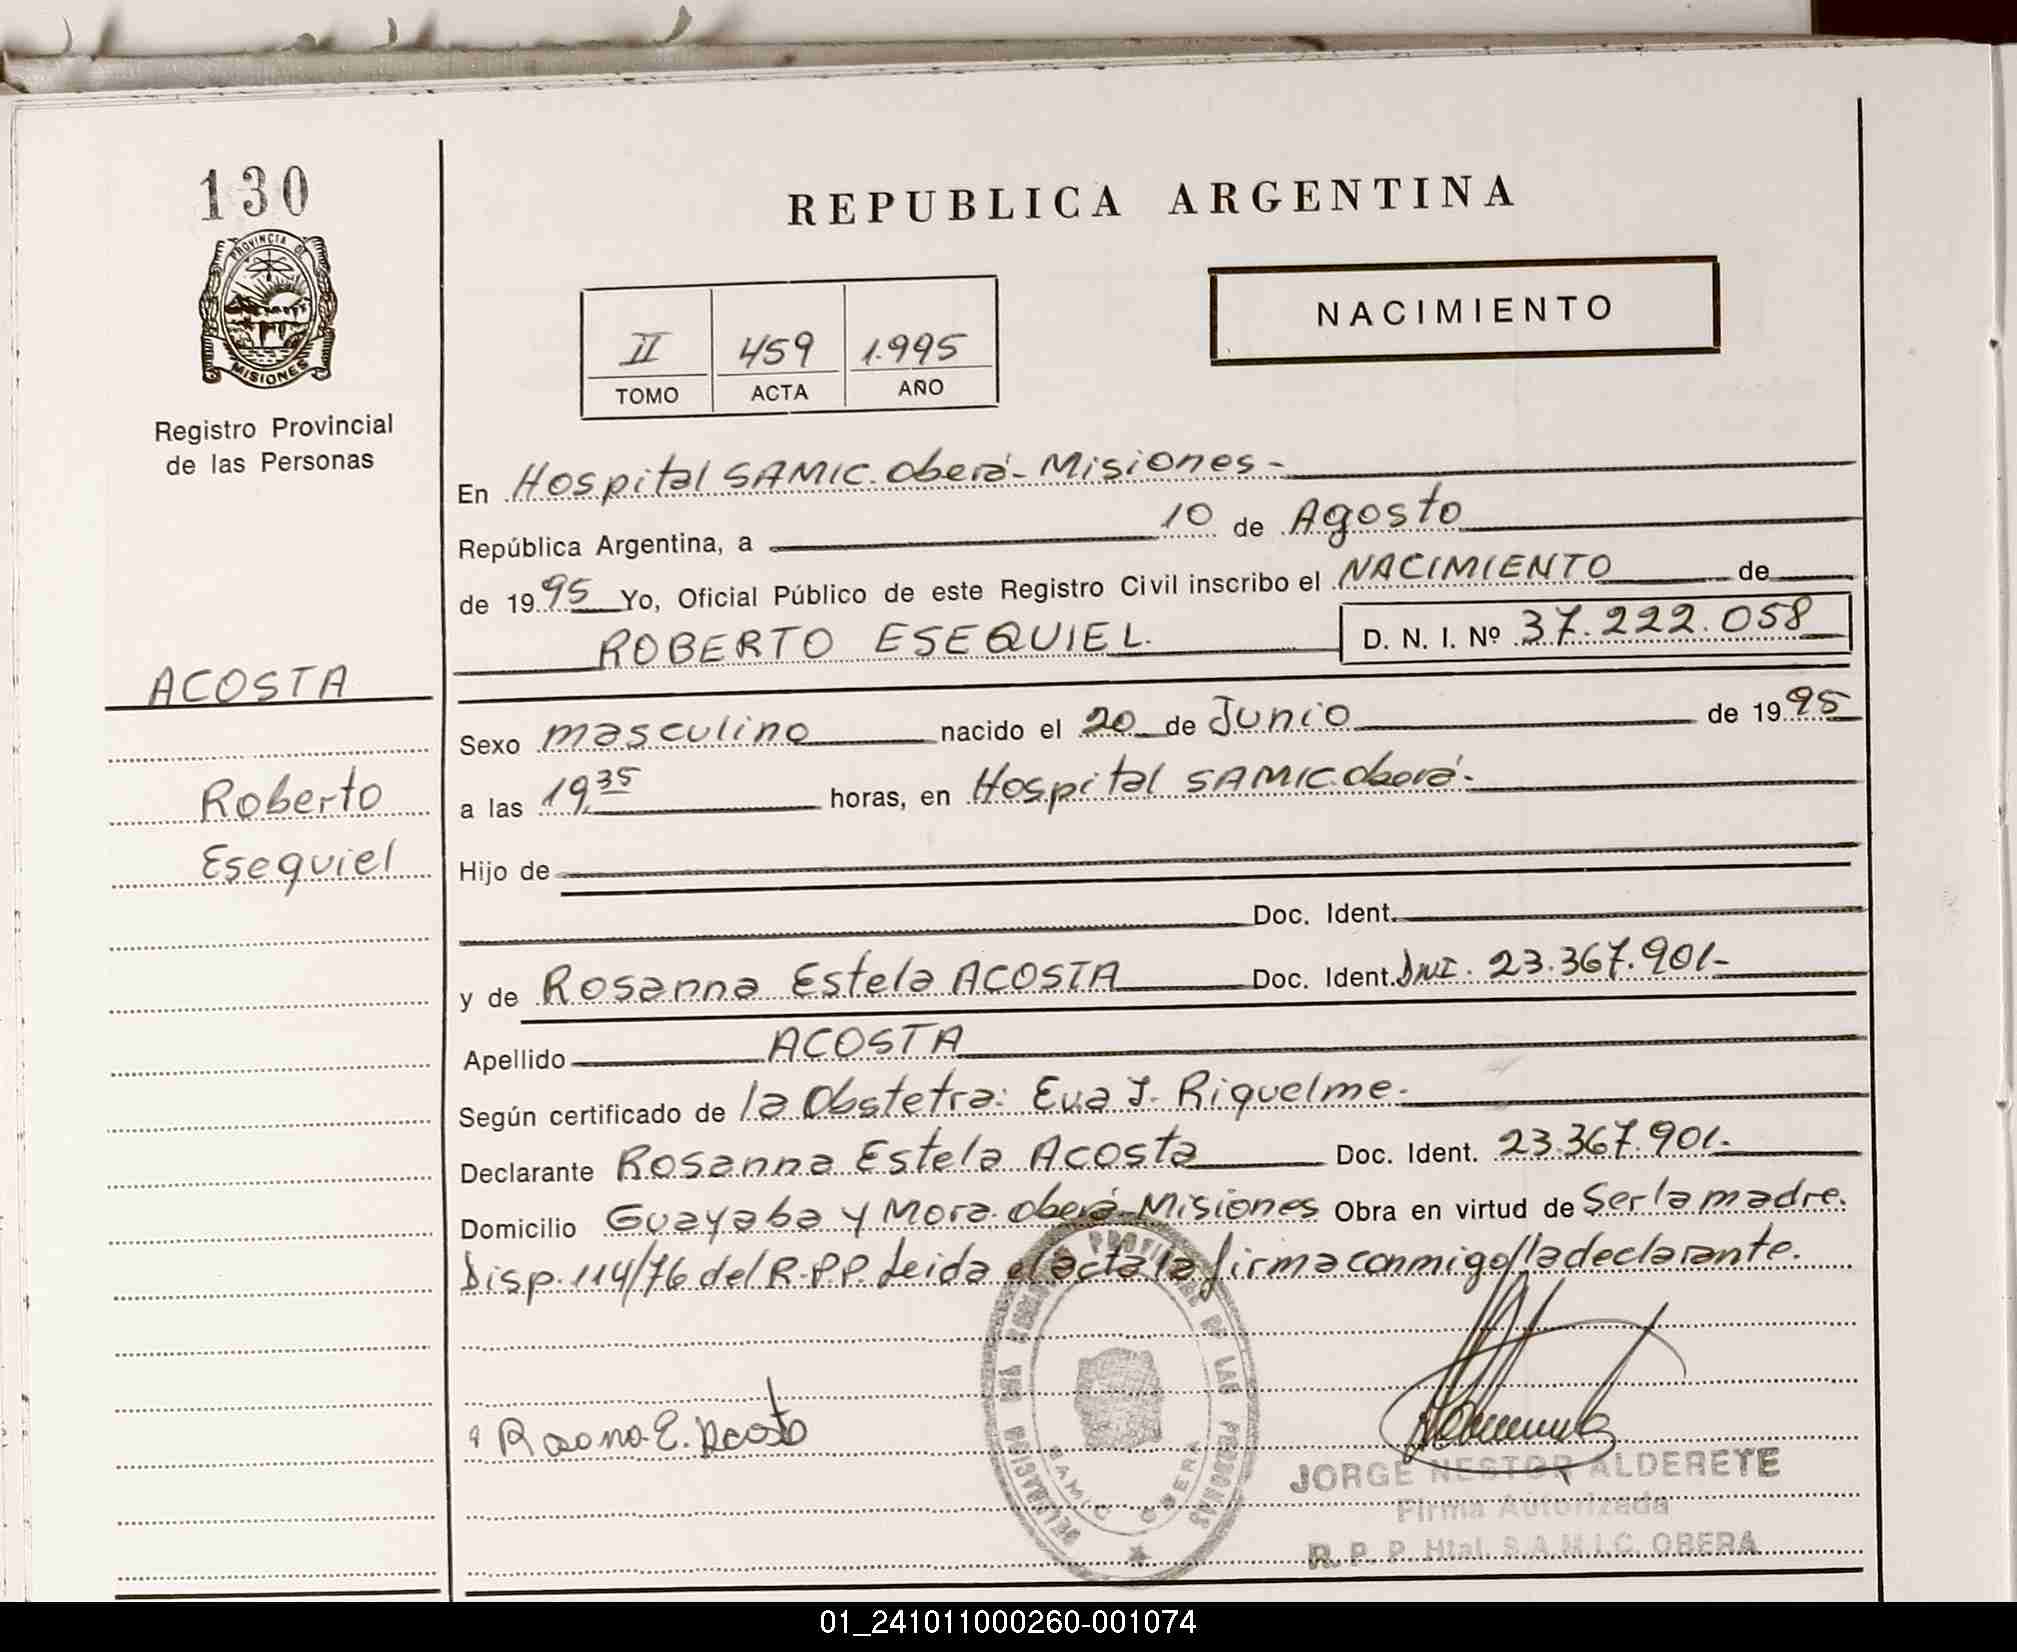 130
REPUBLICA ARGENTINA
PROVINCIA DE
MISIONES
NACIMIENTO
II 459 1.995
TOMO ACTA AÑO
Registro Provincial
de las Personas
En Hospital SAMIC. Oberá - Misiones -
República Argentina, a 10 de Agosto
de 1995 Yo, Oficial Público de este Registro Civil inscribo el NACIMIENTO de
ROBERTO ESEQUIEL. D. N. I. Nº 37.222.058
ACOSTA
Sexo masculino nacido el 20 de Junio de 1995
Roberto
a las 19,35 horas, en Hospital SAMIC. Oberá -
Esequiel
Hijo de
Doc. Ident.
y de Rosanna Estela ACOSTA Doc. Ident. DNI. 23.367.901-
Apellido ACOSTA
Según certificado de la Obstetra: Eva J. Riquelme.
Declarante Rosanna Estela Acosta Doc. Ident. 23.367.901.-
Domicilio Guayaba y Mora. Oberá - Misiones Obra en virtud de Ser la madre.
Disp. 114/76 del R.P.P. Leida el acta la firma conmigo//la declarante.
DELEGACION DEL REGISTRO PROVINCIAL DE LAS PERSONAS
SAMIC OBERA
Rosana E. Acosta
JORGE NESTOR ALDERETE
Firma Autorizada
R. P. P. Htal. S.A.M.I.C. OBERA
01_241011000260-001074